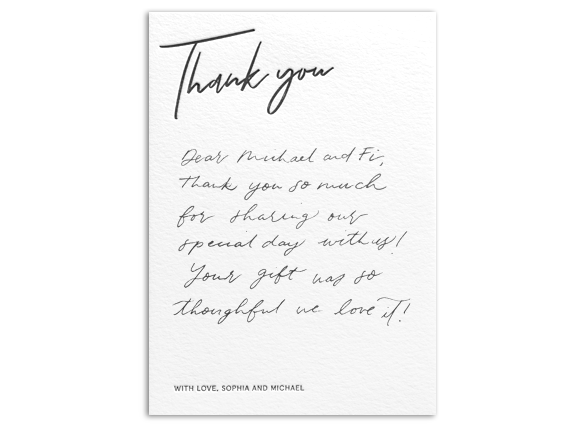 Thank you
Dear Michael and Fi,
Thank you so much
for sharing our
special day with us!
Your gift was so
thoughtful we love it!
WITH LOVE, SOPHIA AND MICHAEL